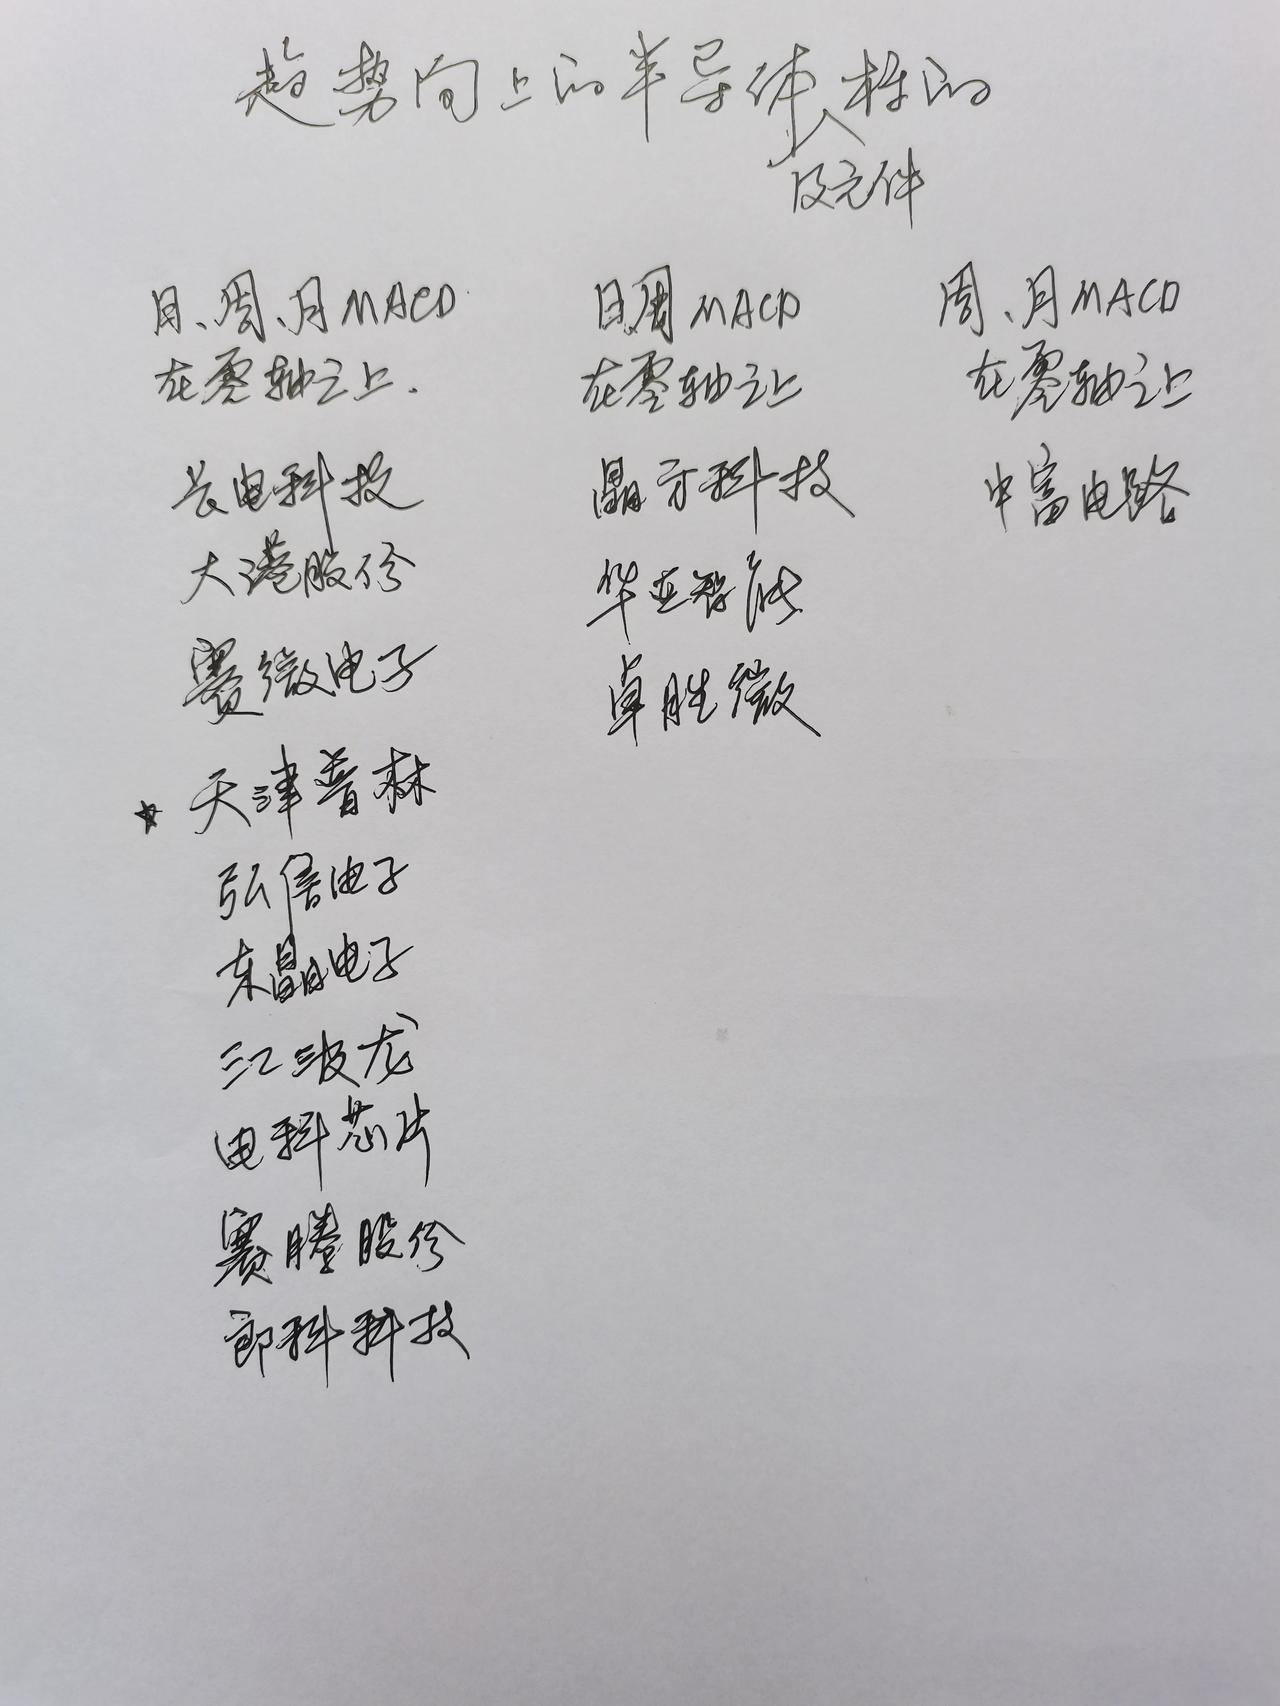 趋势向上的半导体标的
及元件
日、周、月MACD
在零轴之上.
长电科技
大港股份
赛微电子
天津普林
弘信电子
东晶电子
江波龙
电科芯片
赛腾股份
朗科科技
日周MACD
在零轴之上
晶方科技
华亚智能
卓胜微
周、月MACD
在零轴之上
中富电路